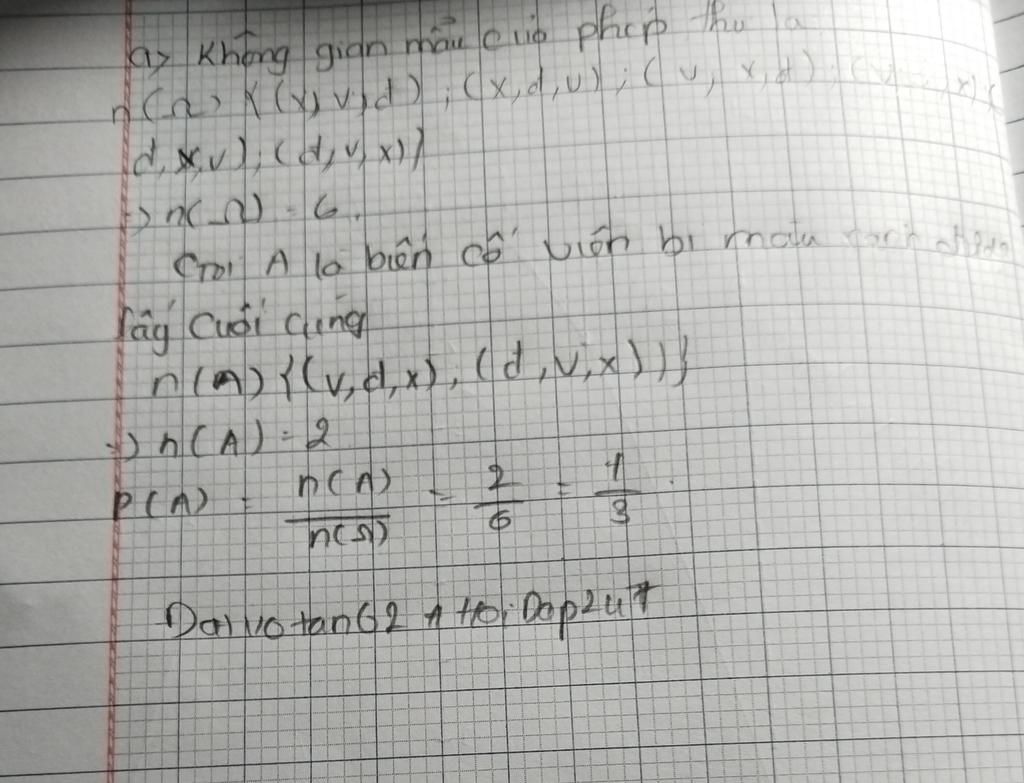 a> Không gian mẫu của phép thử là
n(Ω) {(x,v,d); (x,d,v); (v,x,d); (v, ,x);(
d,x,v); (d,v,x)}
→ n(Ω) = 6.
Gọi A là biến cố viên bi màu xanh được
lấy cuối cùng
n(A) {(v,d,x), (d,v,x))}
→ n(A) = 2
P(A) = n(A)/n(Ω) = 2/6 = 1/3.
Daivotan62 1 Hoi Dap247